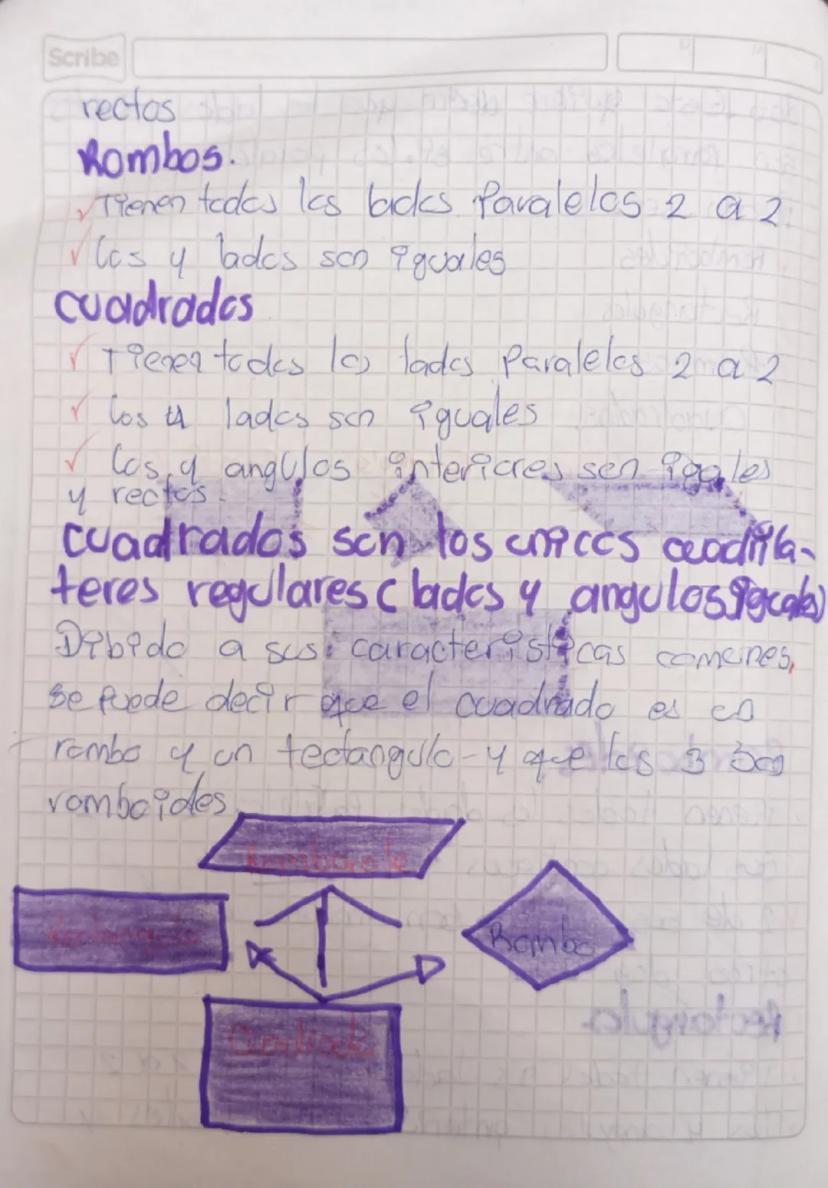 Scribe
rectos
Rombos.
✓ Tienen todos los lados Paralelos 2 a 2.
✓ los 4 lados son iguales
cuadrados
✓ Tienen todos los lados Paralelos 2 a 2
✓ los 4 lados son iguales
✓ los 4 angulos interiores son igales
y rectos.
cuadrados son los unicos cuadrila-
teros regulares (lados y angulos iguales)
Dibido a sus caracteristicas comunes,
se puede decir que el cuadrado es un
rombo y un rectangulo-y que los 3 son
romboides.
Romboide
Rectangulo
Rombo
Cuadrado